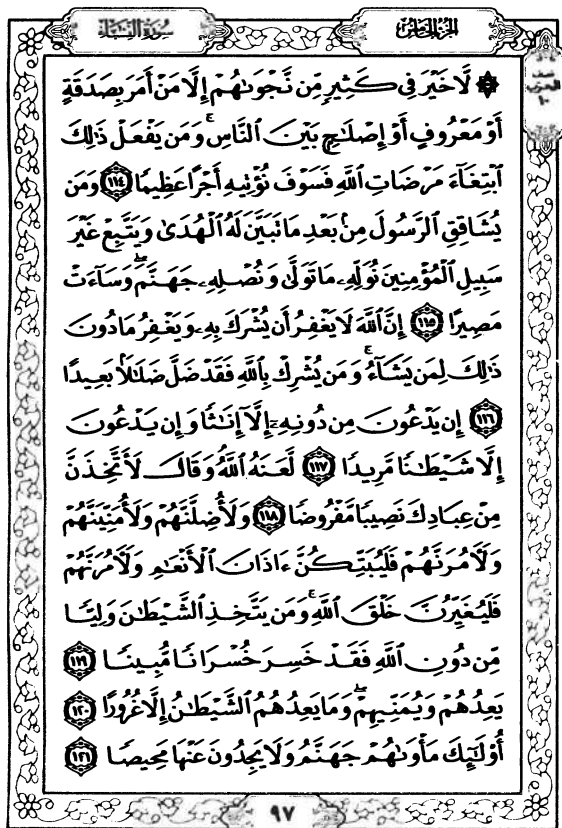 سُورَةُ النِّسَاءِ
الجُزْءُ الخَامِسُ
نصف
الحزب
١٠
۞ لَّا خَيْرَ فِي كَثِيرٍ مِّن نَّجْوَىٰهُمْ إِلَّا مَنْ أَمَرَ بِصَدَقَةٍ
أَوْ مَعْرُوفٍ أَوْ إِصْلَٰحٍۭ بَيْنَ النَّاسِ ۚ وَمَن يَفْعَلْ ذَٰلِكَ
ابْتِغَآءَ مَرْضَاتِ اللَّهِ فَسَوْفَ نُؤْتِيهِ أَجْرًا عَظِيمًا ١١٤ وَمَن
يُشَاقِقِ الرَّسُولَ مِنۢ بَعْدِ مَا تَبَيَّنَ لَهُ الْهُدَىٰ وَيَتَّبِعْ غَيْرَ
سَبِيلِ الْمُؤْمِنِينَ نُوَلِّهِۦ مَا تَوَلَّىٰ وَنُصْلِهِۦ جَهَنَّمَ ۖ وَسَآءَتْ
مَصِيرًا ١١٥ إِنَّ اللَّهَ لَا يَغْفِرُ أَن يُشْرَكَ بِهِۦ وَيَغْفِرُ مَا دُونَ
ذَٰلِكَ لِمَن يَشَآءُ ۚ وَمَن يُشْرِكْ بِاللَّهِ فَقَدْ ضَلَّ ضَلَٰلًۢا بَعِيدًا
١١٦ إِن يَدْعُونَ مِن دُونِهِۦٓ إِلَّآ إِنَٰثًا وَإِن يَدْعُونَ
إِلَّا شَيْطَٰنًا مَّرِيدًا ١١٧ لَّعَنَهُ اللَّهُ ۘ وَقَالَ لَأَتَّخِذَنَّ
مِنْ عِبَادِكَ نَصِيبًا مَّفْرُوضًا ١١٨ وَلَأُضِلَّنَّهُمْ وَلَأُمَنِّيَنَّهُمْ
وَلَءَامُرَنَّهُمْ فَلَيُبَتِّكُنَّ ءَاذَانَ الْأَنْعَٰمِ وَلَءَامُرَنَّهُمْ
فَلَيُغَيِّرُنَّ خَلْقَ اللَّهِ ۚ وَمَن يَتَّخِذِ الشَّيْطَٰنَ وَلِيًّا
مِّن دُونِ اللَّهِ فَقَدْ خَسِرَ خُسْرَانًا مُّبِينًا ١١٩
يَعِدُهُمْ وَيُمَنِّيهِمْ ۖ وَمَا يَعِدُهُمُ الشَّيْطَٰنُ إِلَّا غُرُورًا ١٢٠
أُو۟لَٰٓئِكَ مَأْوَىٰهُمْ جَهَنَّمُ وَلَا يَجِدُونَ عَنْهَا مَحِيصًا ١٢١
٩٧